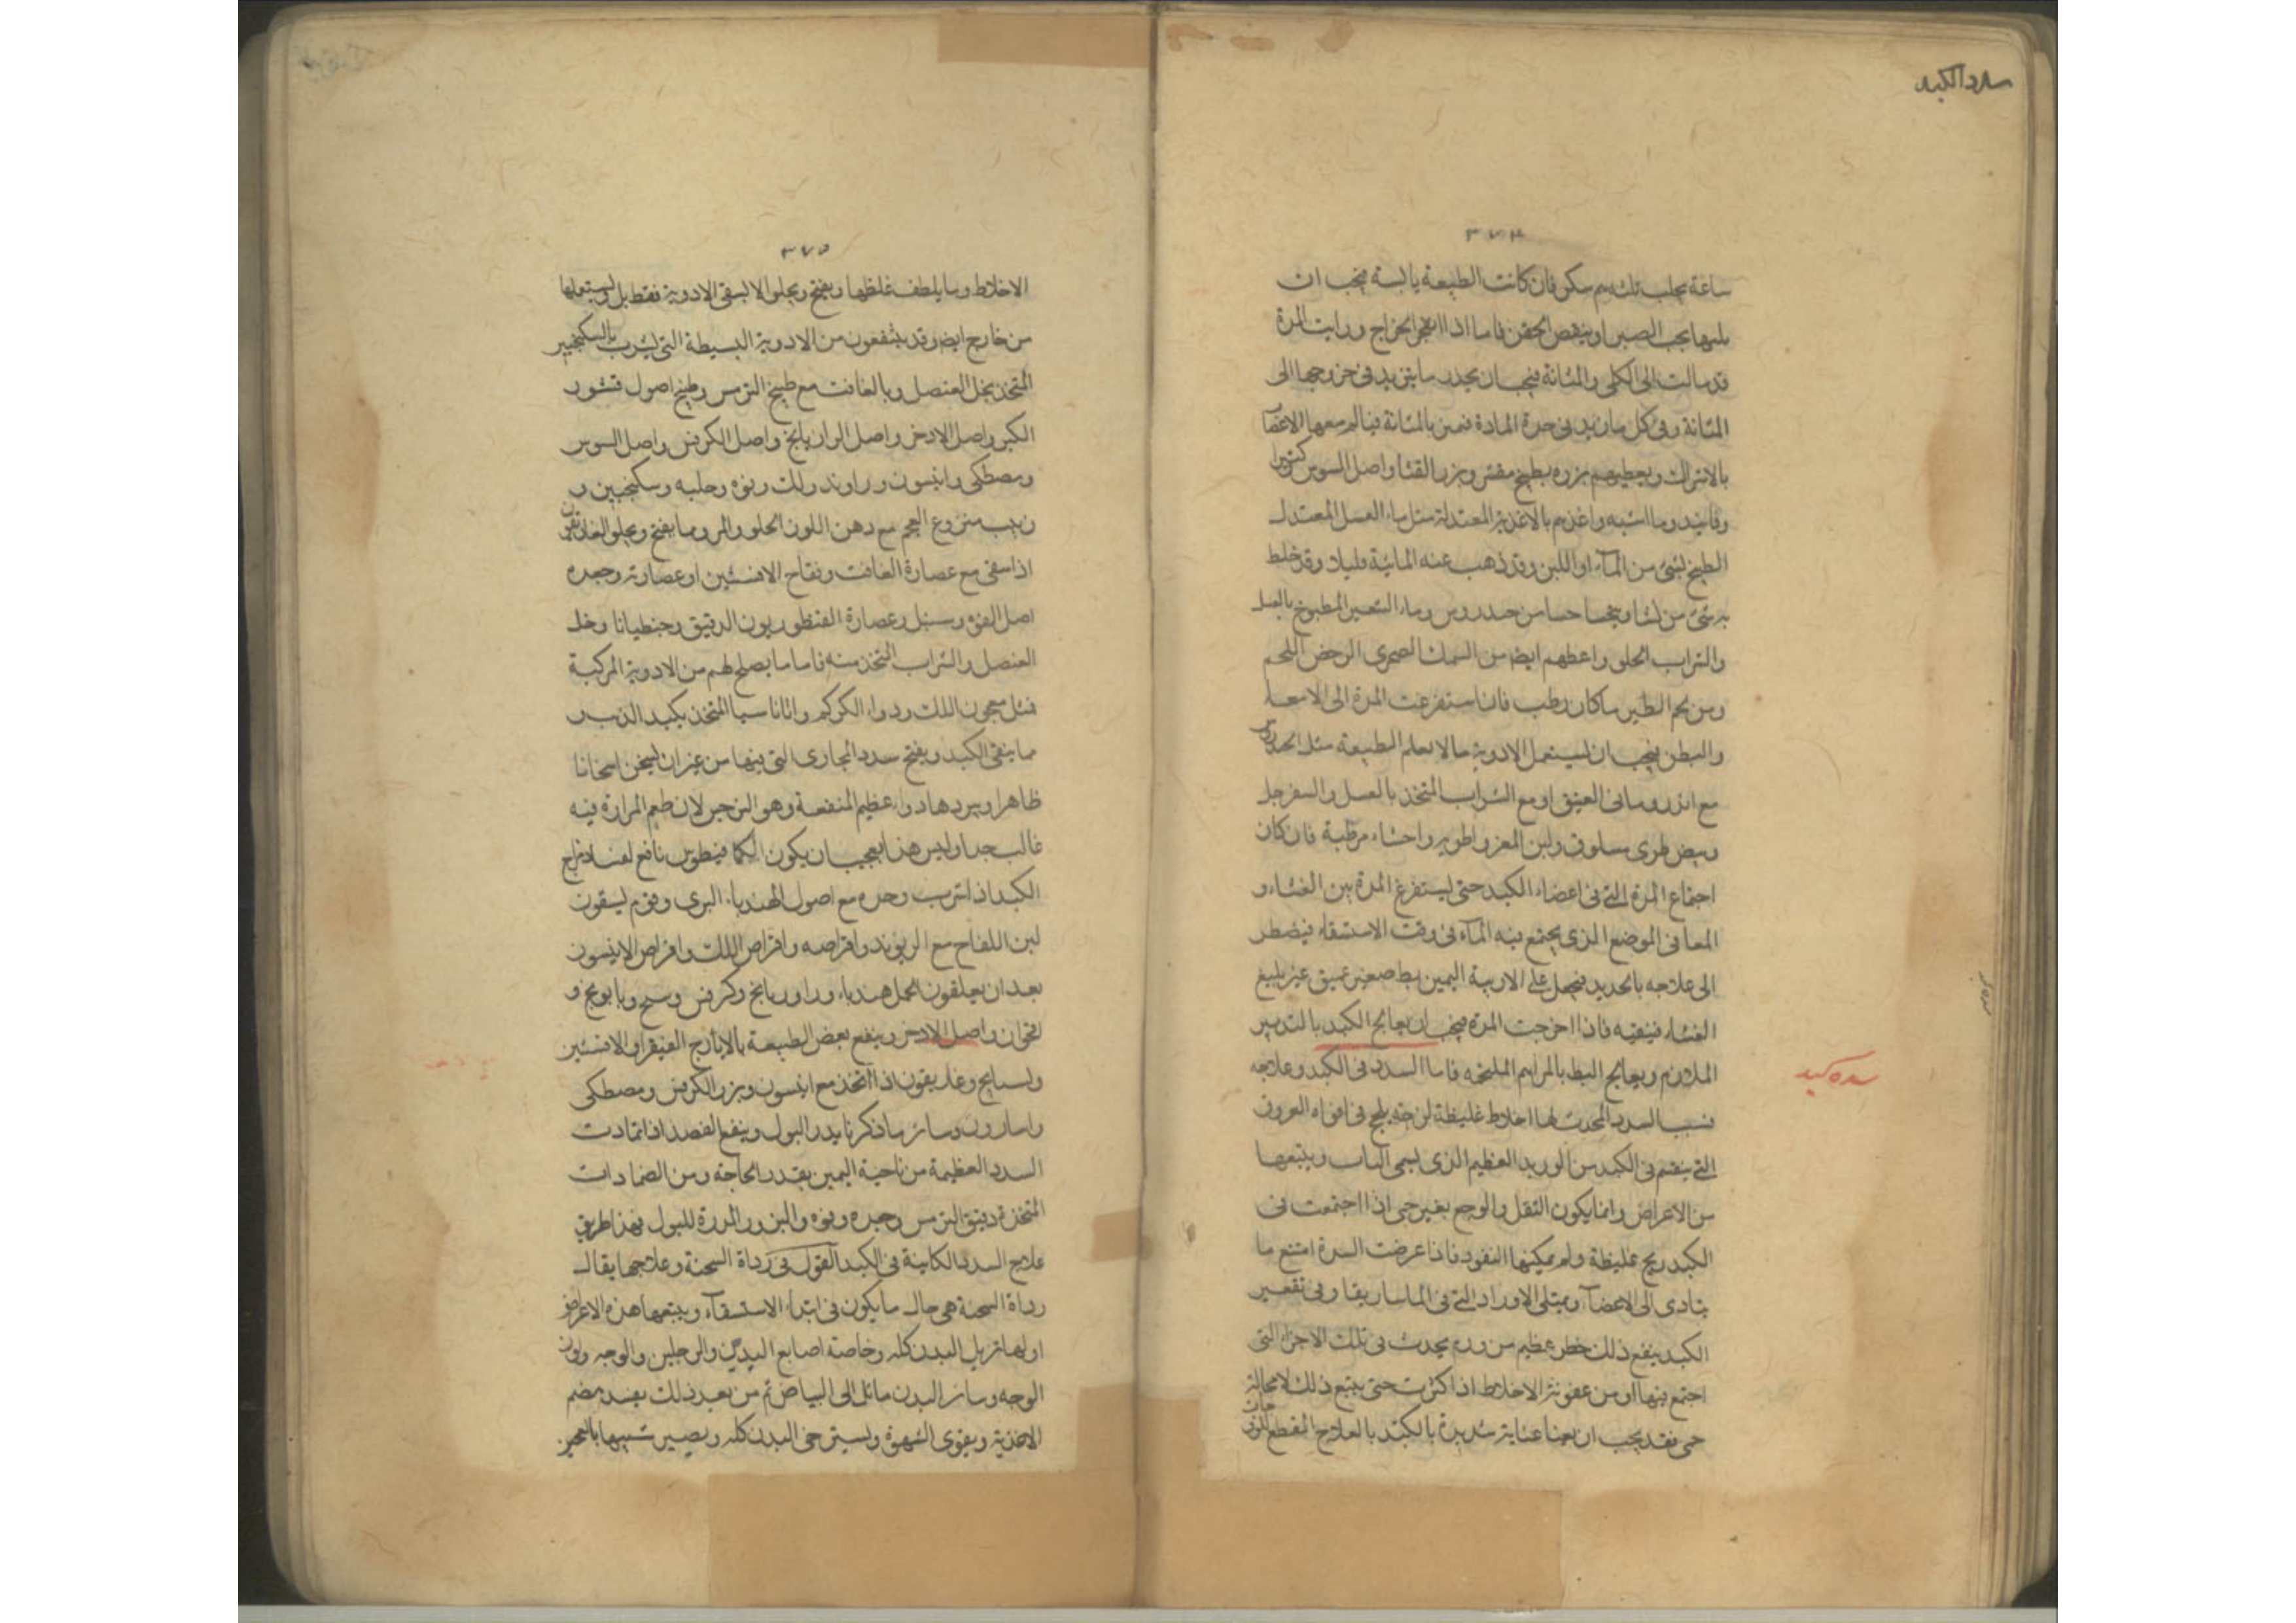 سدد الكبد
٣٧٤
ساعة بجلب تلك ثم سكن فان كانت الطبيعة يابسة فيجب ان
يلينها بحب الصبر او ببعض الحقن فاما اذا انفجر الخراج ورايت المرة
قد مالت الى الكلى والمثانة فيجب ان يحذر ما يزيد في خروجها الى
المثانة وفي كل ما يزيد في حدة المادة فمن بالمثانة فينالم معها الاعضآ
بالاشراك ويعطيهم بزره بطيخ مقشر وبزر القثا واصل السوس وكثيرا
وفانيد وما اشبه واغذهم بالاغذية المعتدلة مثل ماء العسل المعتدل
الطبخ بشئ من المآء او اللبن وقد ذهب عنه المائية قليلا وقد خلط
به شئ من نشا ويتحسا حسا من حندروس وماء الشعير المطبوخ بالعسل
والشراب الحلو واعطهم ايضا من السمك الصخرى الرخص اللحم
ومن لحم الطير ما كان رطب فان استفرغت المرة الى الامعا
والبطن فيجب ان يستعمل الادوية مما لا يعلم الطبيعة مثل
مع اندرومانى العتيق او مع الشراب المتخذ بالعسل والسفرجل
وبيض طرى مسلوق ولبن المعز واطويه واحشاء مرطبة فان كان
اجتماع المرة التي في اعضاء الكبد حتى يستفرغ المرة بين الغشاء و
المعا في الموضع الذى يجتمع فيه المآء في وقت الاستسقاء فيضطر
الى علاجه بالحديد فيجعل على الاربية اليمين بط صغير عميق غير بليغ
الغشاء فينقيه فاذا اخرجت المرة فيجب ان يعالج الكبد بالتدبير
الملازم ويعالج البط بالمراهم الملتحمه فاما السدد في الكبد وعلاجه
سده كبد
فسبب السدد المحدث لها اخلاط غليظة لزجه يلحج في افواه العروق
التي ينقسم في الكبد من الوريد العظيم الذى يسمى الباب ويتبعها
من الاعراض وانما يكون الثقل والوجع بغير حمى اذا اجتمعت في
الكبد ريح غليظة ولم يمكنها النفوذ فاذا عرضت السدة امتنع ما
يتادى الى الاعضآ ويمتلى الاوراد التي في الماساريقا وفي تقعير
الكبد يتبع ذلك خطر عظيم من ورم يحدث في تلك الاجزاء التي
اجتمع فيها او من عفونة الاخلاط اذا كثرت حتى يتبع ذلك لا محالة
حمى فقد يجب ان يعنا عناية شديدة بالكبد بالعلاج المقطع
٣٧٥
الاخلاط وما يلطف غلظها ويفتح ويجلو الا ليسقى الادوية فقط بل ويستعملها
من خارج ايضا وقد ينتفعون من الادوية البسيطة التي يشرب بالسكنجبين
المتخذ بخل العنصل وبالغافت مع طبيخ الترمس وطبيخ اصول قشور
الكبر واصل الادخر واصل الرازيانج واصل الكرفس واصل السوس
ومصطكى وانيسون وراوند ولك وفوه وحلبه وسكنجبين و
زبيب منزوع العجم مع دهن اللون الحلو والمر وما يفتح ويجلو الغاريقون
اذا سقى مع عصارة الغافت وفقاح الافسنتين او عصارته وجعده
اصل الفوه وسنبل وعصارة القنطوريون الدقيق وجنطيانا وخل
العنصل والشراب المتخذ منه فاما ما يصلح لهم من الادوية المركبة
فمثل معجون اللك ودواء الكركم واثاناسيا المتخذ بكبد الذيب
مما ينقى الكبد ويفتح سدد المجارى التي فيها من غير ان يسخن اسخانا
ظاهرا ويبردها دواء عظيم المنفعة وهو النرجس لان طعم المرارة فيه
غالب جدا وليس هذا بعجيب ان يكون الكمافيطوس نافع لفساد مزاج
الكبد اذ اشرب وحده مع اصول الهندباء البرى وقوم يسقون
لبن اللقاح مع الريوند واقراصه واقراص اللك واقراص الانيسون
بعد ان يعلفون الحمل هندباء ورازيانج وكرفس وشيح وبابونج و
اقحوان واصل الادخر وينفع بعض الطبيعة بالايارج الفيقرا والافسنتين
وبسبايج وغاريقون اذا اتخذ مع انيسون وبزر الكرفس ومصطكى
واسارون وسائر ما ذكرنا يدر البول وينفع الفصد اذا تمادت
السدد العظيمة من ناحية اليمين بقدر الحاجة ومن الضمادات
المتخذة دقيق الترمس وجعده وفوه والبزور المدرة للبول فهذا طريق
علاج السدد الكاينة في الكبد القول في رداة السحنة وعلاجها يقال
رداة السحنة هي حال ما يكون في ابتداء الاستسقآء ويتبعها هذه الاعراض
اولها تزيل البدن كله وخاصة اصابع اليدين والرجلين والوجه ولون
الوجه وسائر البدن مائل الى البياض ثم من بعد ذلك يفسد هضم
الاغذية ويقوى الشهوة ويسترخى البدن كله ويصير شبيها بالعجين